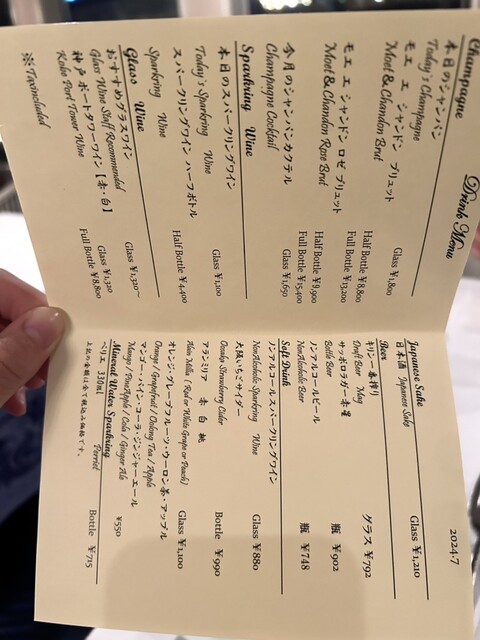 Drink Menu
2024.7
Champagne
本日のシャンパン
Today's Champagne Glass ¥1,800
モエ エ シャンドン ブリュット
Moet&Chandon Brut Half Bottle ¥8,800
Full Bottle ¥13,200
モエ エ シャンドン ロゼ ブリュット
Moet&Chandon Rose Brut Half Bottle ¥9,900
Full Bottle ¥15,400
今月のシャンパンカクテル
Champagne Cocktail Glass ¥1,650
Sparkring Wine
本日のスパークリングワイン
Today's Sparkring Wine Glass ¥1,100
スパークリングワイン ハーフボトル
Sparkring Wine Half Bottle ¥4,400
Glass Wine
おすすめグラスワイン
Glass Wine Staff Recommended Glass ¥1,320~
神戸ポートタワーワイン【赤・白】 Glass ¥1,320
Kobe Port Tower Wine Full Bottle ¥8,800
※Taxincluded
Japanese Sake
日本酒 Japanese Sake Glass ¥1,210
Beer
キリン一番搾り
Draft Beer Mug グラス ¥792
サッポロラガー赤星
Bottle Beer 瓶 ¥902
ノンアルコールビール
NonAlcoholic Beer 瓶 ¥748
Soft Drink
ノンアルコールスパークリングワイン
NonAlcoholic Sparkring Wine Glass ¥880
大阪いちごサイダー
Osaka Strawberry Cider Bottle ¥990
アランミリア 赤 白 桃
Alain Millia (Red or White Grape or Peach) Glass ¥1,100
オレンジ・グレープフルーツ・ウーロン茶・アップル
Orange / Grapefruit / Oolong Tea / Apple
マンゴー・パイン・コーラ・ジンジャーエール
Mango / PineApple / Cola / Ginger Ale ¥550
Mineral Water Sparkring
ペリエ 330ml Perriet Bottle ¥715
上記の金額は全て税込み価格です。